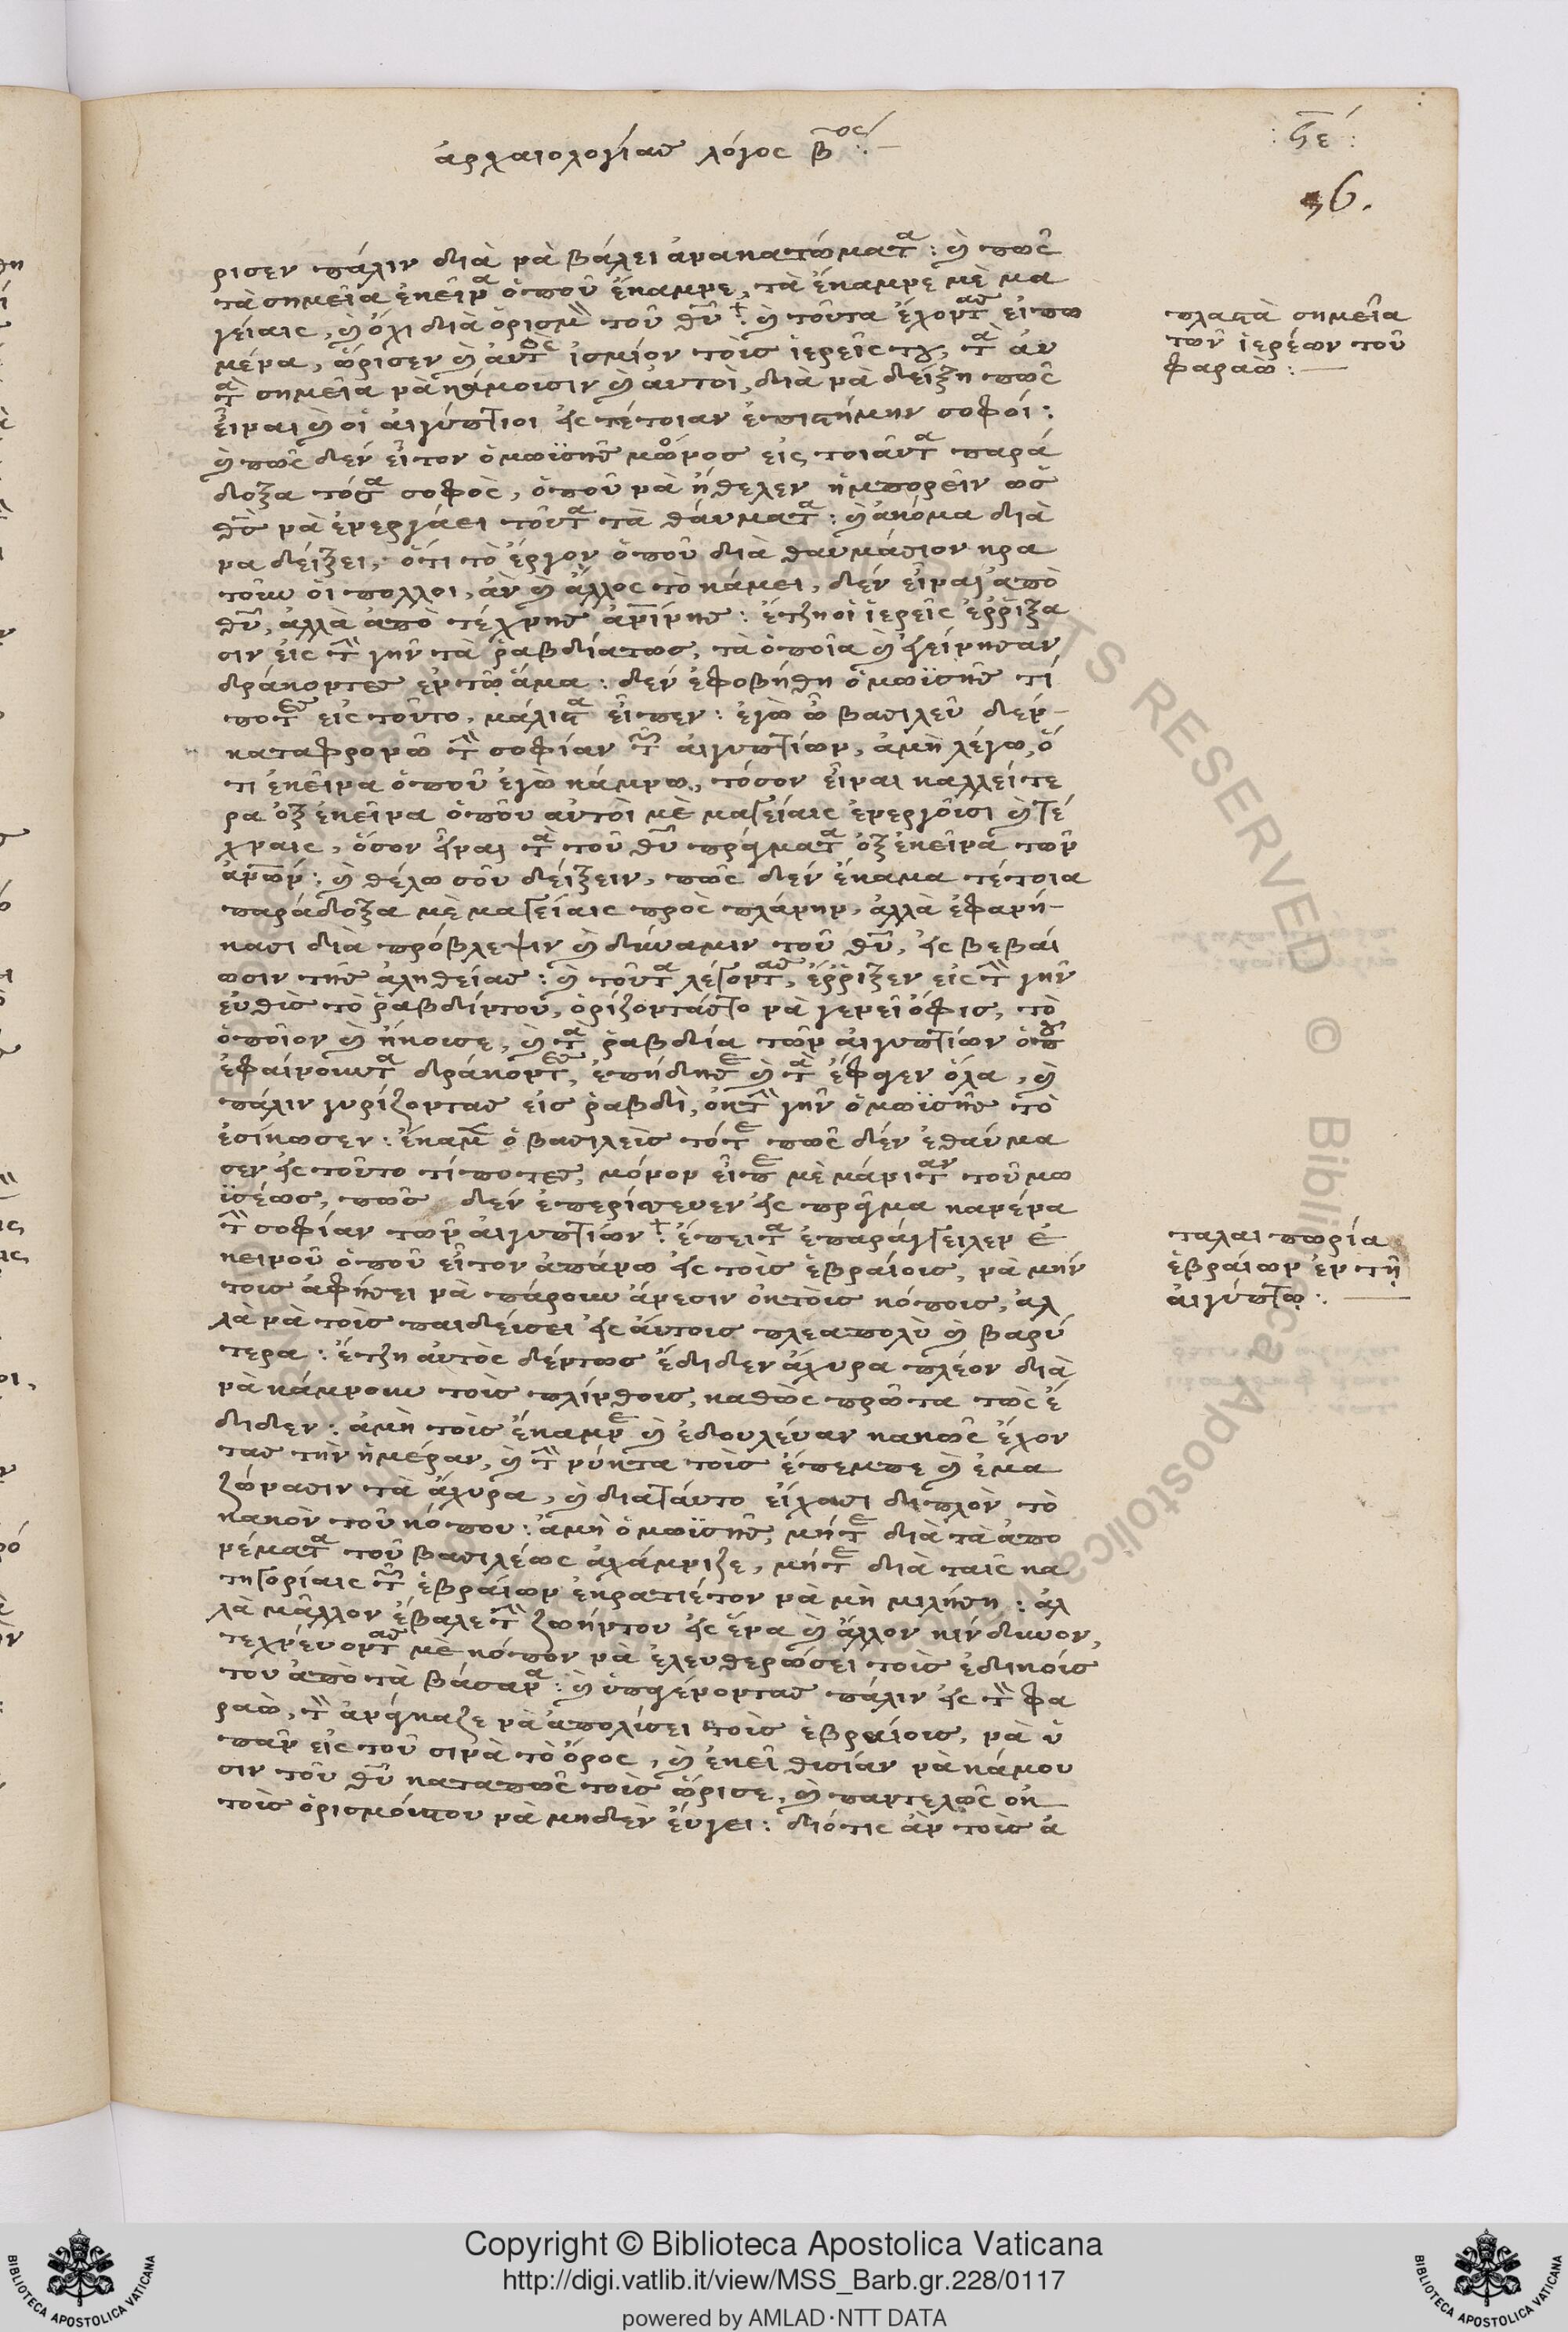 ἀρχαιολογίας λόγος β ος :–
: ϟε :
96.
ρισεν πάλιν διὰ νὰ βάλει ἀνακατώματα : καὶ πῶς
τὰ σημεῖα ἐκεῖνα ὁποῦ ἔκαμνε, τὰ ἔκαμνε μὲ μα
γείαις, καὶ ὄχι διὰ ὁρισμὸν τοῦ θῦ : καὶ τοῦτα ἔχοντας εἰπω
μένα, ὥρισεν καὶ αὐτὸς ἰσμίον τοὶς ἱερεῖς του, τὰ αὐ
τὰ σημεῖα νὰ κάμοισιν καὶ αὐτοὶ, διὰ νὰ δείξη πῶς
εἶναι καὶ οἱ αἰγύπτιοι εἰς τέτοιαν ἐπιστήμην σοφοί :
καὶ πῶς δὲν εἶτον ὁ μωϋσῆς μόνος εἰς τοιαῦτα παρά
δοξα τόσα σοφὸς, ὁποῦ νὰ ἤθελεν ἠμπορεῖν ὡς
θς νὰ ἐνεργάει τοῦτα τὰ θαύματα : καὶ ἀκόμα διὰ
να δείξει, ὅτι τὸ ἔργον ὁποῦ διὰ θαυμάσιον κρα
τοῦν οἱ πολλοι, ἀν καὶ ἄλλος τὸ κάμει, δὲν εἶναι ἀπὸ
θῦ, ἀλλὰ ἀπὸ τέχνης ἀνίνης : ἔτζη οἱ ἱερεῖς ἐῤῥίξα
σιν εἰς τὴν γῆν τὰ ῥαβδίατως, τὰ ὁποῖα καὶ ἐγείνησαν
δράκοντες ἐν τῷ ἅμα : δὲν ἐφοβήθη ὁ μωϋσῆς τί
ποτες εἰς τοῦτο, μάλιστα εἶπεν : ἐγὼ ὦ βασιλεῦ δὲν –
καταφρονῶ τὴν σοφίαν τῶν αἰγυπτίων, ἀμὴ λέγω, ὅ
τι ἐκεῖνα ὁποῦ ἐγὼ κάμνω, τόσον εἶναι καλλείτε
ρα ὀξ ἐκεῖνα ὁποῦ αὐτοὶ μὲ μαγείαις ἐνεργοῖσι καὶ τέ
χναις, ὅσον εἶναι τὰ τοῦ θῦ πράγματα ὀξ ἐκεῖνα τῶν
ἀνῶν : καὶ θέλω σοῦ δείξειν, πῶς δὲν ἔκαμα τέτοια
παράδοξα μὲ μαγείαις πρὸς πλάνην, ἀλλὰ ἐφανή –
κασι διὰ πρόβλεψιν καὶ δύναμιν τοῦ θῦ, εἰς βεβαί
ωσιν τῆς ἀληθείας : καὶ τοῦτα λέγοντας, ἔῤῥιξεν εἰς τὴν γῆν
εὐθὶς τὸ ῥαβδίντου, ὁρίζοντάς το νὰ γενεῖ ὄφις, τὸ
ὁποῖον καὶ ἤκοισε, καὶ τὰ ῥαβδία τῶν αἰγυπτίων ὁποῦ
ἐφαίνουντα δράκοντες, ἐπήδησε καὶ τὰ ἔφαγεν ὅλα, καὶ
πάλιν γυρίζοντας εἰς ῥαβδὶ, ὀκ τὴν γῆν ὁ μωϋσῆς τὸ
ἐσίκωσεν : ἔκαμεν ὁ βασιλεὶς τότε πῶς δὲν ἐθαύμα
σεν εἰς τοῦτο τίποτες, μόνον εἶπε μὲ μάνιταν τοῦ μω
ϋσέως, πῶς δὲν ἐπερίσσευεν εἰς πρᾶγμα κανένα
τὴν σοφίαν τῶν αἰγυπτίων : ἔπειτα ἐπαράγγειλεν ἐ
κεινοῦ ὁποῦ εἶτον ἀπάνω εἰς τοὶς ἑβραίοις, νὰ μὴν
τοις ἀφήσει νὰ πάρουν ἄνεσιν ὀκ τοὶς κόποις, ἀλ
λὰ νὰ τοὶς παιδείσει εἰς αὐτοις πλεα πολὺ καὶ βαρύ
τερα : ἔτζη αὐτὸς δέντως ἔδιδεν ἄχυρα πλέον διὰ
νὰ κάμνουν τοὶς πλίνθοις, καθὼς πρῶτα τὼς ἔ
διδεν : ἀμὴ τοὶς ἔκαμνε καὶ ἐδουλεύαν κακῶς ἔχον
τας τὴν ἡμέραν, καὶ τὴν νύκτα τοὶς ἔπεμπε καὶ ἐμα
ζώνασιν τὰ ἄχυρα, καὶ διαταύτο εἴχασι διπλὸν τὸ
κακὸν τοῦ κόπου : ἀμὴ ὁ μωϋσῆς, μήτε διὰ τὰ ἀπο
νέματα τοῦ βασιλέως ἀχάμνιζε, μήτε διὰ ταὶς κα
τηγορίαις τῶν ἑβραίων ἐκρατιέτον νὰ μὴ μιλήση : ἀλ
λὰ μᾶλλον ἔβαλε τὴν ζωήντου εἰς ἕνα καὶ ἄλλον κίνδυνον,
τεχνέυοντας μὲ κόπον νὰ ἐλευθερώσει τοὶς ἐδικοίς
του ἀπὸ τὰ βάσανα : καὶ ὑπαγένοντας πάλιν εἰς τὴν φα
ραὼ, τὸν ἀνάγκαζε νὰ ἀπολίσει τοὶς ἑβραίοις, νὰ ὑ
πᾶν εἰς τοῦ σινὰ τὸ ὄρος, καὶ ἐκεῖ θισίαν νὰ κάμου
σιν τοῦ θῦ καταπῶς τοὶς ὥρισε, καὶ παντελῶς ὀκ
τοὶς ὁρισμούςτου νὰ μηδὲν εὔγει : διότις ἀν τοὶς ἀ
πλαστὰ σημεῖα
τῶν ἱερέων τοῦ
φαραὼ : —
ταλαιπωρία
ἑβραίων ἐν τῇ
αἰγύπτῳ : —
Copyright © Biblioteca Apostolica Vaticana
http://digi.vatlib.it/view/MSS_Barb.gr.228/0117
powered by AMLAD·NTT DATA